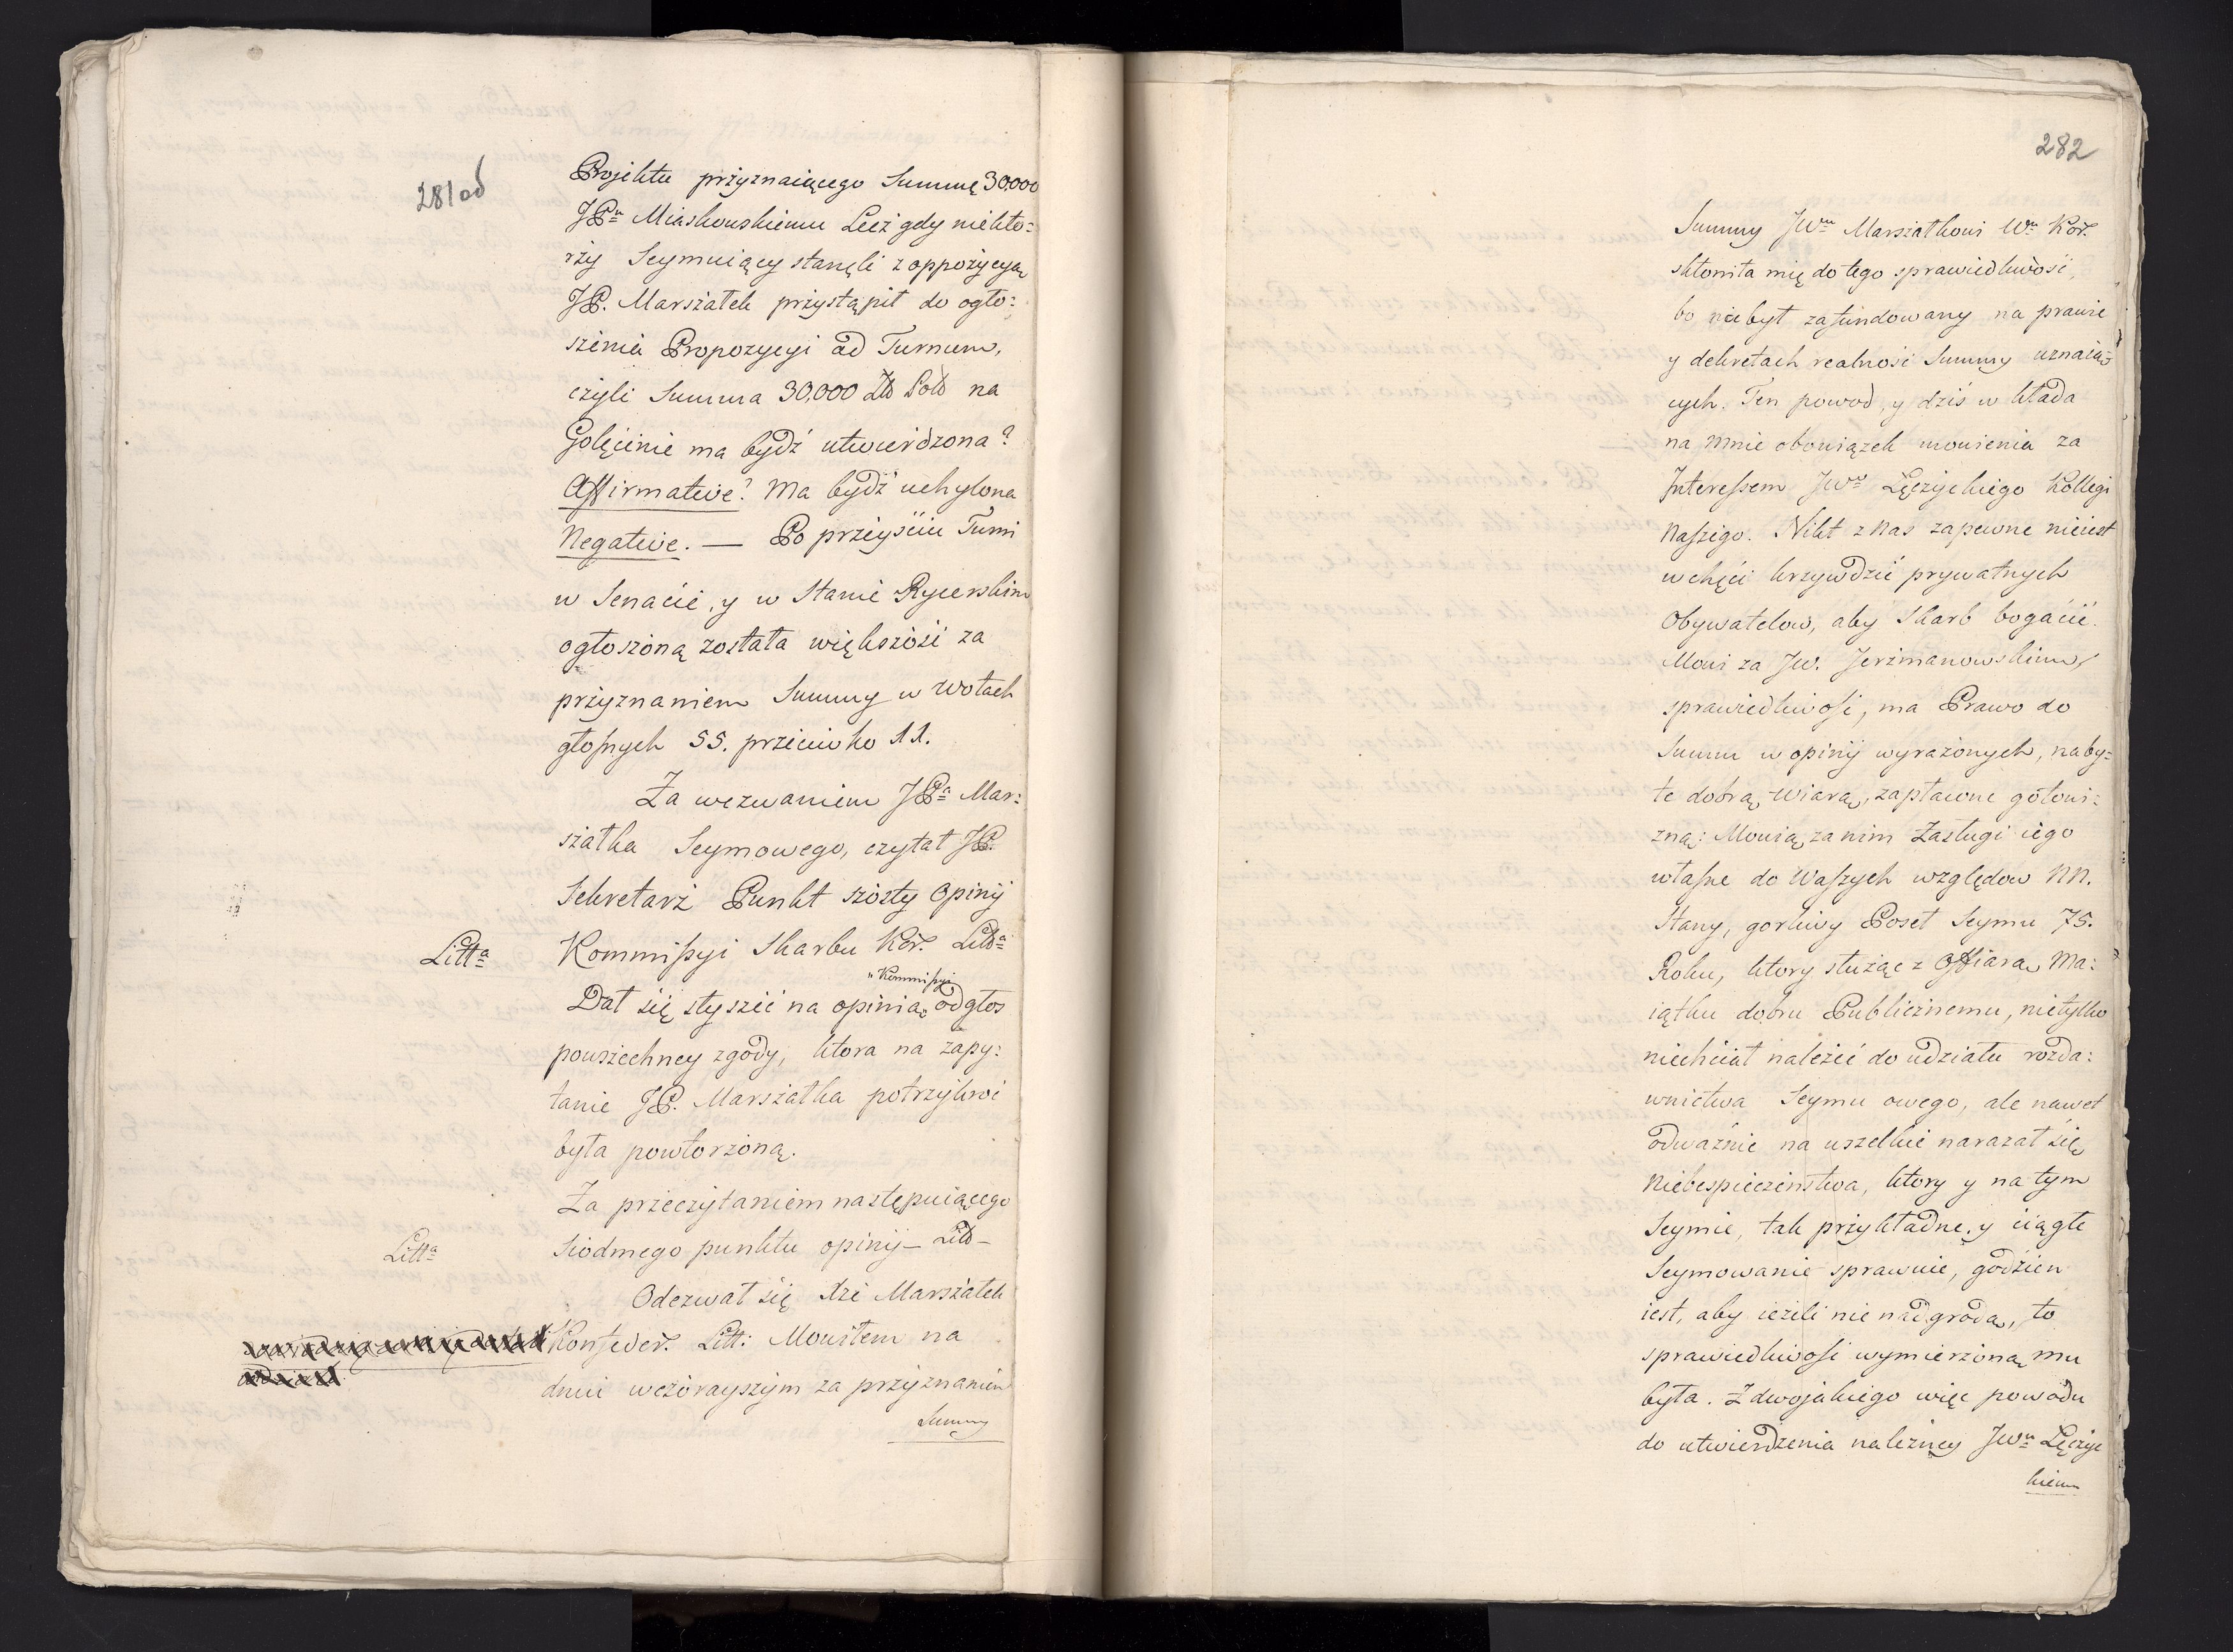 281 od
Projektu przyznaiącego Summę 30,000
JPu Miaskowskiemu Lecz gdy niekto=
rzy Seymuiący stanęli z oppozycyą
JP. Marszałek przystąpił do ogło=
szenia Propozycyi ad Turnum,
czyli Summa 30,000 Zło Pols na
Golęcinie ma bydź utwierdzona?
Affirmative? Ma bydź uchylona
Negative. — Po przeyściu Turni
w Senacie, y w Stanie Rycerskim
ogłoszoną została większość za
przyznaniem Summy w wotach
głośnych 55. przeciwko 11.
Za wezwaniem JPa Mar:
szałka Seymowego, czytał JP.
Sekretarz Punkt szósty Opinij
Litta Kommissyi Skarbu Kor. Litta
"Kommissyi
Dał się słyszeć na opinią odgłos
powszechney zgody, ktora na zapy:
tanie JP. Marszałka potrzykroć
była powtorzoną.
Za przeczytaniem następuiącego
Litta Siodmego punktu opinij — Litt —
Odezwał się Xże Marszałek
Konfeder. Litt: Mowiłem na
dniu wczorayszym za przyznaniem
Summy
282
Summy JWmu Marszałkowi Wmu Kor.
skłoniła mię do tego sprawiedliwość,
bo niebył zafundowany na prawie
y dekretach realność Summy uznaią=
cych. Ten powod, y dziś w kłada
na mnie obowiązek mowienia za
Interessem JWo Łęczyckiego Kollegi
Naszego. Nikt z Nas zapewne nieiest
w chęci krzywdzić prywatnych
Obywatelow, aby Skarb bogacić.
Mowi za JW. Jerzmanowskim,
sprawiedliwość, ma Prawo do
Summ w opinij wyrażonych, naby=
te dobrą wiarą, zapłacone gotowi:
zną: Mowią za nim Zasługi iego
własne do Waszych względow NN.
Stany, gorliwy Poseł Seymu 75.
Roku, ktory służąc z Offiarą Ma:
iątku dobru Publicznemu, nietylko
niechciał należeć do udziału rozda:
wnictwa Seymu owego, ale nawet
odważnie na wszelkie narazał się
Niebespieczeństwa, ktory y na tym
Seymie, tak przykładne, y ciągłe
Seymowanie sprawuie, godzien
iest, aby ieżeli nie nadgrodą, to
sprawiedliwość wymierzoną mu
była. Z dwojakiego więc powodu
do utwierdzenia należney JWu Łęczyc
kiemu